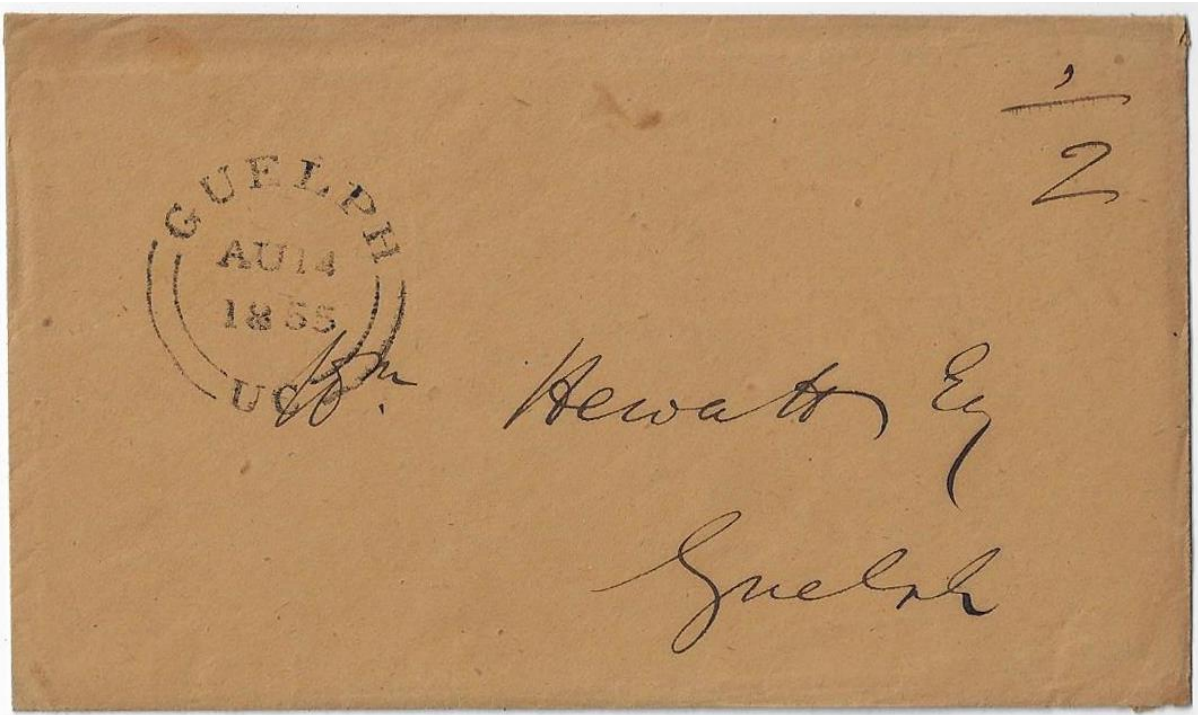 1/2
GUELPH
AU 14
1855
UC
Wm. Hewatt Esq
Guelph